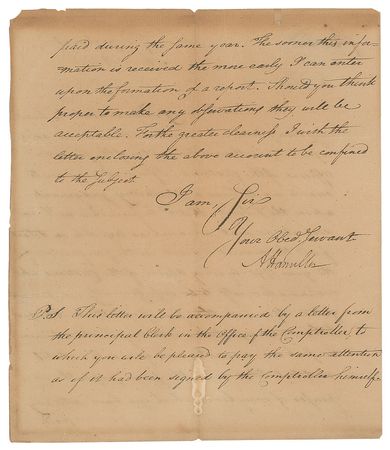 paid during the same year. The sooner this infor-
mation is received the more early I can enter
upon the formation of a report. Should you think
proper to make any observations they will be
acceptable. For the greater clearness I wish the
letter enclosing the above account to be confined
to the Subject.
I am, Sir
Your Obed. Servant
A Hamilton
P.S. This letter will be accompanied by a letter from
the principal Clerk in the Office of the Comptroller to
which you will be pleased to pay the same attention
as if it had been signed by the Comptroller himself.